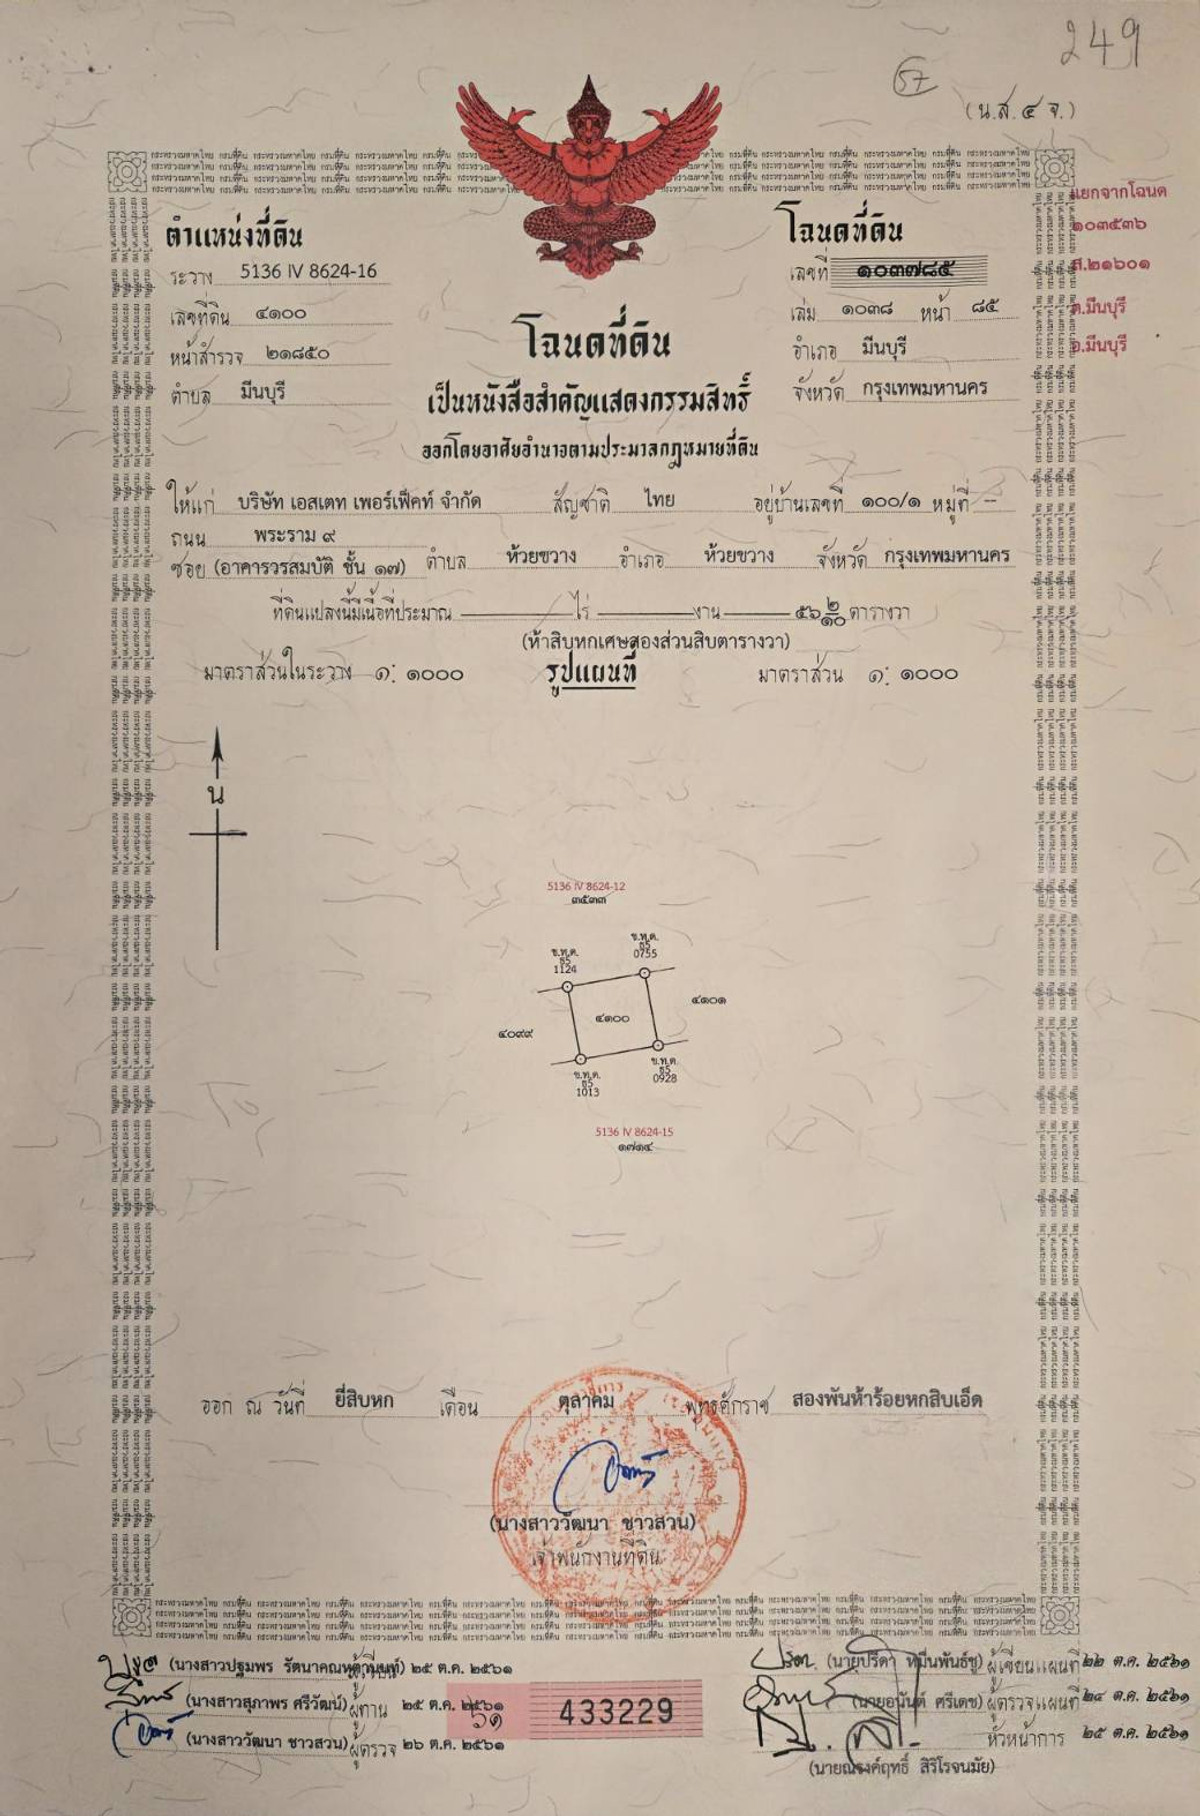 249
57
(น.ส. ๔ จ.)
แยกจากโฉนด
๑๐๓๕๓๖
ส.๒๑๖๐๑
ต.มีนบุรี
อ.มีนบุรี
ตำแหน่งที่ดิน
ระวาง 5136 IV 8624-16
เลขที่ดิน ๔๑๐๐
หน้าสำรวจ ๒๑๘๕๐
ตำบล มีนบุรี
โฉนดที่ดิน
เลขที่ ๑๐๓๗๘๕
เล่ม ๑๐๓๘ หน้า ๘๕
อำเภอ มีนบุรี
จังหวัด กรุงเทพมหานคร
โฉนดที่ดิน
เป็นหนังสือสำคัญแสดงกรรมสิทธิ์
ออกโดยอาศัยอำนาจตามประมวลกฎหมายที่ดิน
ให้แก่ บริษัท เอสเตท เพอร์เฟ็คท์ จำกัด สัญชาติ ไทย อยู่บ้านเลขที่ ๑๐๐/๑ หมู่ที่ -
ถนน พระราม ๙
ซอย (อาคารวรสมบัติ ชั้น ๑๗) ตำบล ห้วยขวาง อำเภอ ห้วยขวาง จังหวัด กรุงเทพมหานคร
ที่ดินแปลงนี้มีเนื้อที่ประมาณ ไร่ งาน ๕๖ ๒/๑๐ ตารางวา
(ห้าสิบหกเศษสองส่วนสิบตารางวา)
มาตราส่วนในระวาง ๑: ๑๐๐๐ รูปแผนที่ มาตราส่วน ๑: ๑๐๐๐
น
5136 IV 8624-12
๓๕๓๓
ข.ท.ด.
ธ5
0755
ข.ท.ด.
ธ5
1124
๔๑๐๑
๔๑๐๐
๔๐๙๙
ข.ท.ด.
ธ5
0928
ข.ท.ด.
ธ5
1013
5136 IV 8624-15
๑๗๑๔
ออก ณ วันที่ ยี่สิบหก เดือน ตุลาคม พุทธศักราช สองพันห้าร้อยหกสิบเอ็ด
(นางสาววัฒนา ชาวสวน)
เจ้าพนักงานที่ดิน
(นางสาวปฐมพร รัตนาคณหุตานนท์) ๒๕ ต.ค. ๒๕๖๑
(นางสาวสุภาพร ศรีวัฒน์) ผู้ทาน ๒๕ ต.ค. ๒๕๖๑
(นางสาววัฒนา ชาวสวน) ผู้ตรวจ ๒๖ ต.ค. ๒๕๖๑
433229
(นายปรีดา หมื่นพันธ์ชู) ผู้เขียนแผนที่ ๒๒ ต.ค. ๒๕๖๑
(นายอนันต์ ศรีเดช) ผู้ตรวจแผนที่ ๒๔ ต.ค. ๒๕๖๑
หัวหน้าการ ๒๕ ต.ค. ๒๕๖๑
(นายณรงค์ฤทธิ์ สิริโรจนมัย)